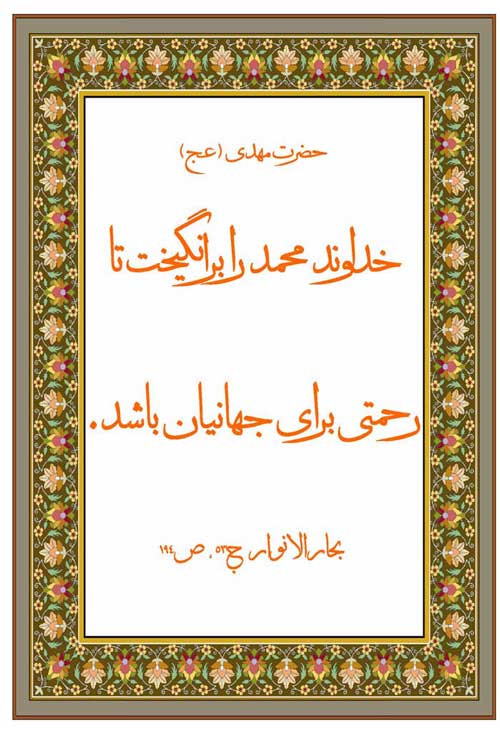 حضرت مهدی (عج)
خداوند محمد را برانگیخت تا
رحمتی برای جهانیان باشد.
بحارالانوار ج۵۳، ص۱۹۴